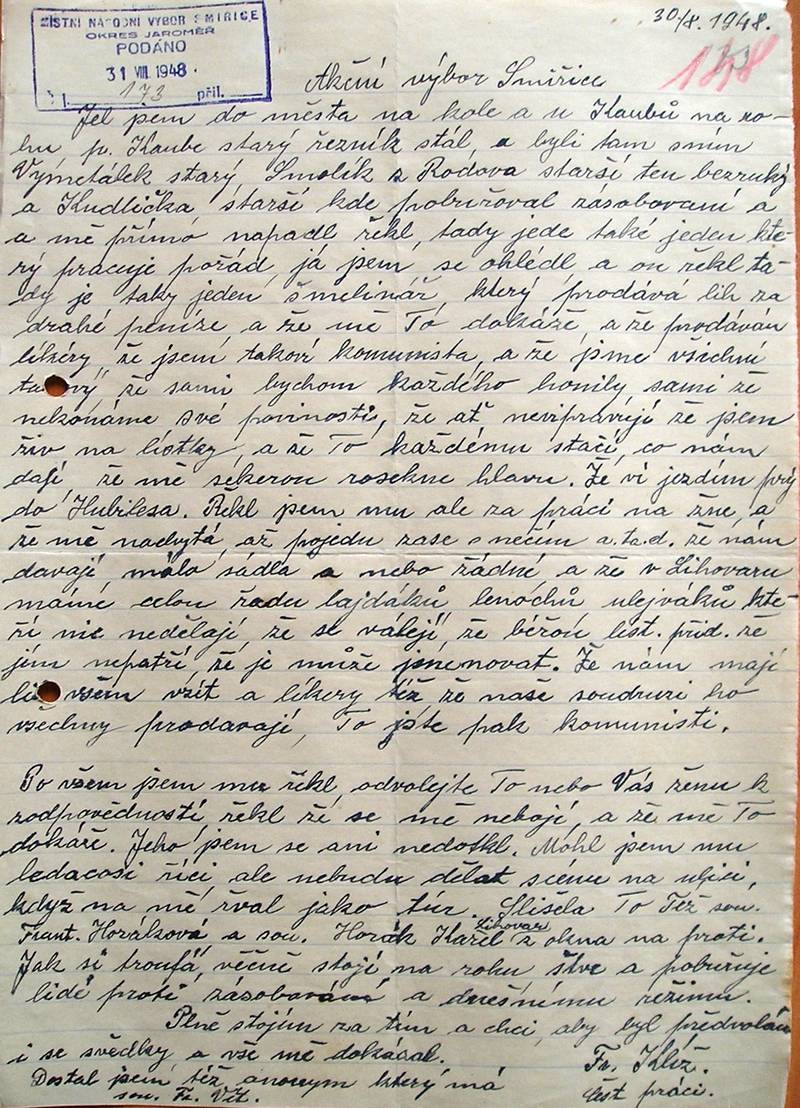 MÍSTNÍ NÁRODNÍ VÝBOR SMIŘICE
OKRES JAROMĚŘ
PODÁNO
31 VIII. 1948.
173 příl.
30./8. 1948.
Akční výbor Smiřice
Jel jsem do města na kole a u Kaubů na ro-
hu p. Kaube starý řezník stál, a byli tam s ním
Vymetálek starý, Smolík z Rodova starší ten bezruký
a Kudlička starší kde pobuřoval zásobovaní a
a mě přímo napadl řekl, tady jede také jeden kte-
rý pracuje pořád, já jsem se ohlédl a on řekl ta-
dy je taky jeden šmelinář, který prodává lih za
drahé peníze, a že mě To dokáže, a že prodávám
likéry, že jsem takoví komunista, a že jsme všichni
že sami bychom každého honily, sami že
nekonáme své povinosti, že ať nevipravují že jsem
živ na lístky, a že To každému stačí, co nám
dají, že mě sekerou rosekne hlavu. Že ví jezdím prý
do Hubilesa. Řekl jsem mu ale za práci na žne, a
že mě nachytá, až pojedu zase s něčím a.t.d. že nám
davají málo sádla a nebo žádné, a že v Lihovaru
máme celou řadu lajdáků, lenochů ulejváků kte-
ří nic nedělají, že se válejí, že běžou líst. přid. že
jim nepatří, že je může jmenovat. Že nám mají
všem vzít a likery též, že naše soudruzi ho
všechny prodavají, To jste pak komunisti.
Po všem jsem mu řekl, odvolejte To nebo Vás ženu k
zodpovědností, řekl ží se mě nebojí, a že mě To
dokáže. Jeho jsem se ani nedotkl. Mohl jsem mu
ledacosi říci, ale nebudu dělat scénu na ulici,
když na mě řval jako túr. Slišela To Též sou.
Frant. Horáková a sou. Horák Karel Lihovar z okna na proti.
Jak si troufá, věčně stojí na rohu štve a pobuřuje
lidé proti zásobování a dnešnímu režimu.
Plně stojím za tím a chci, aby byl předvolán
i se svědky a vše mě dokázal.
Fr. Klíž.
Dostal jsem též anonym který má
čest práci.
sou. Fr. Vít.